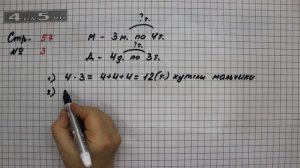 4a5.ru
Стр. 57
№ 3
?т.
М – 3м. по 4т.
?т.
Д – 4д. по 3т.
1) 4 · 3 = 4+4+4 = 12 (т.) купили мальчики
2)